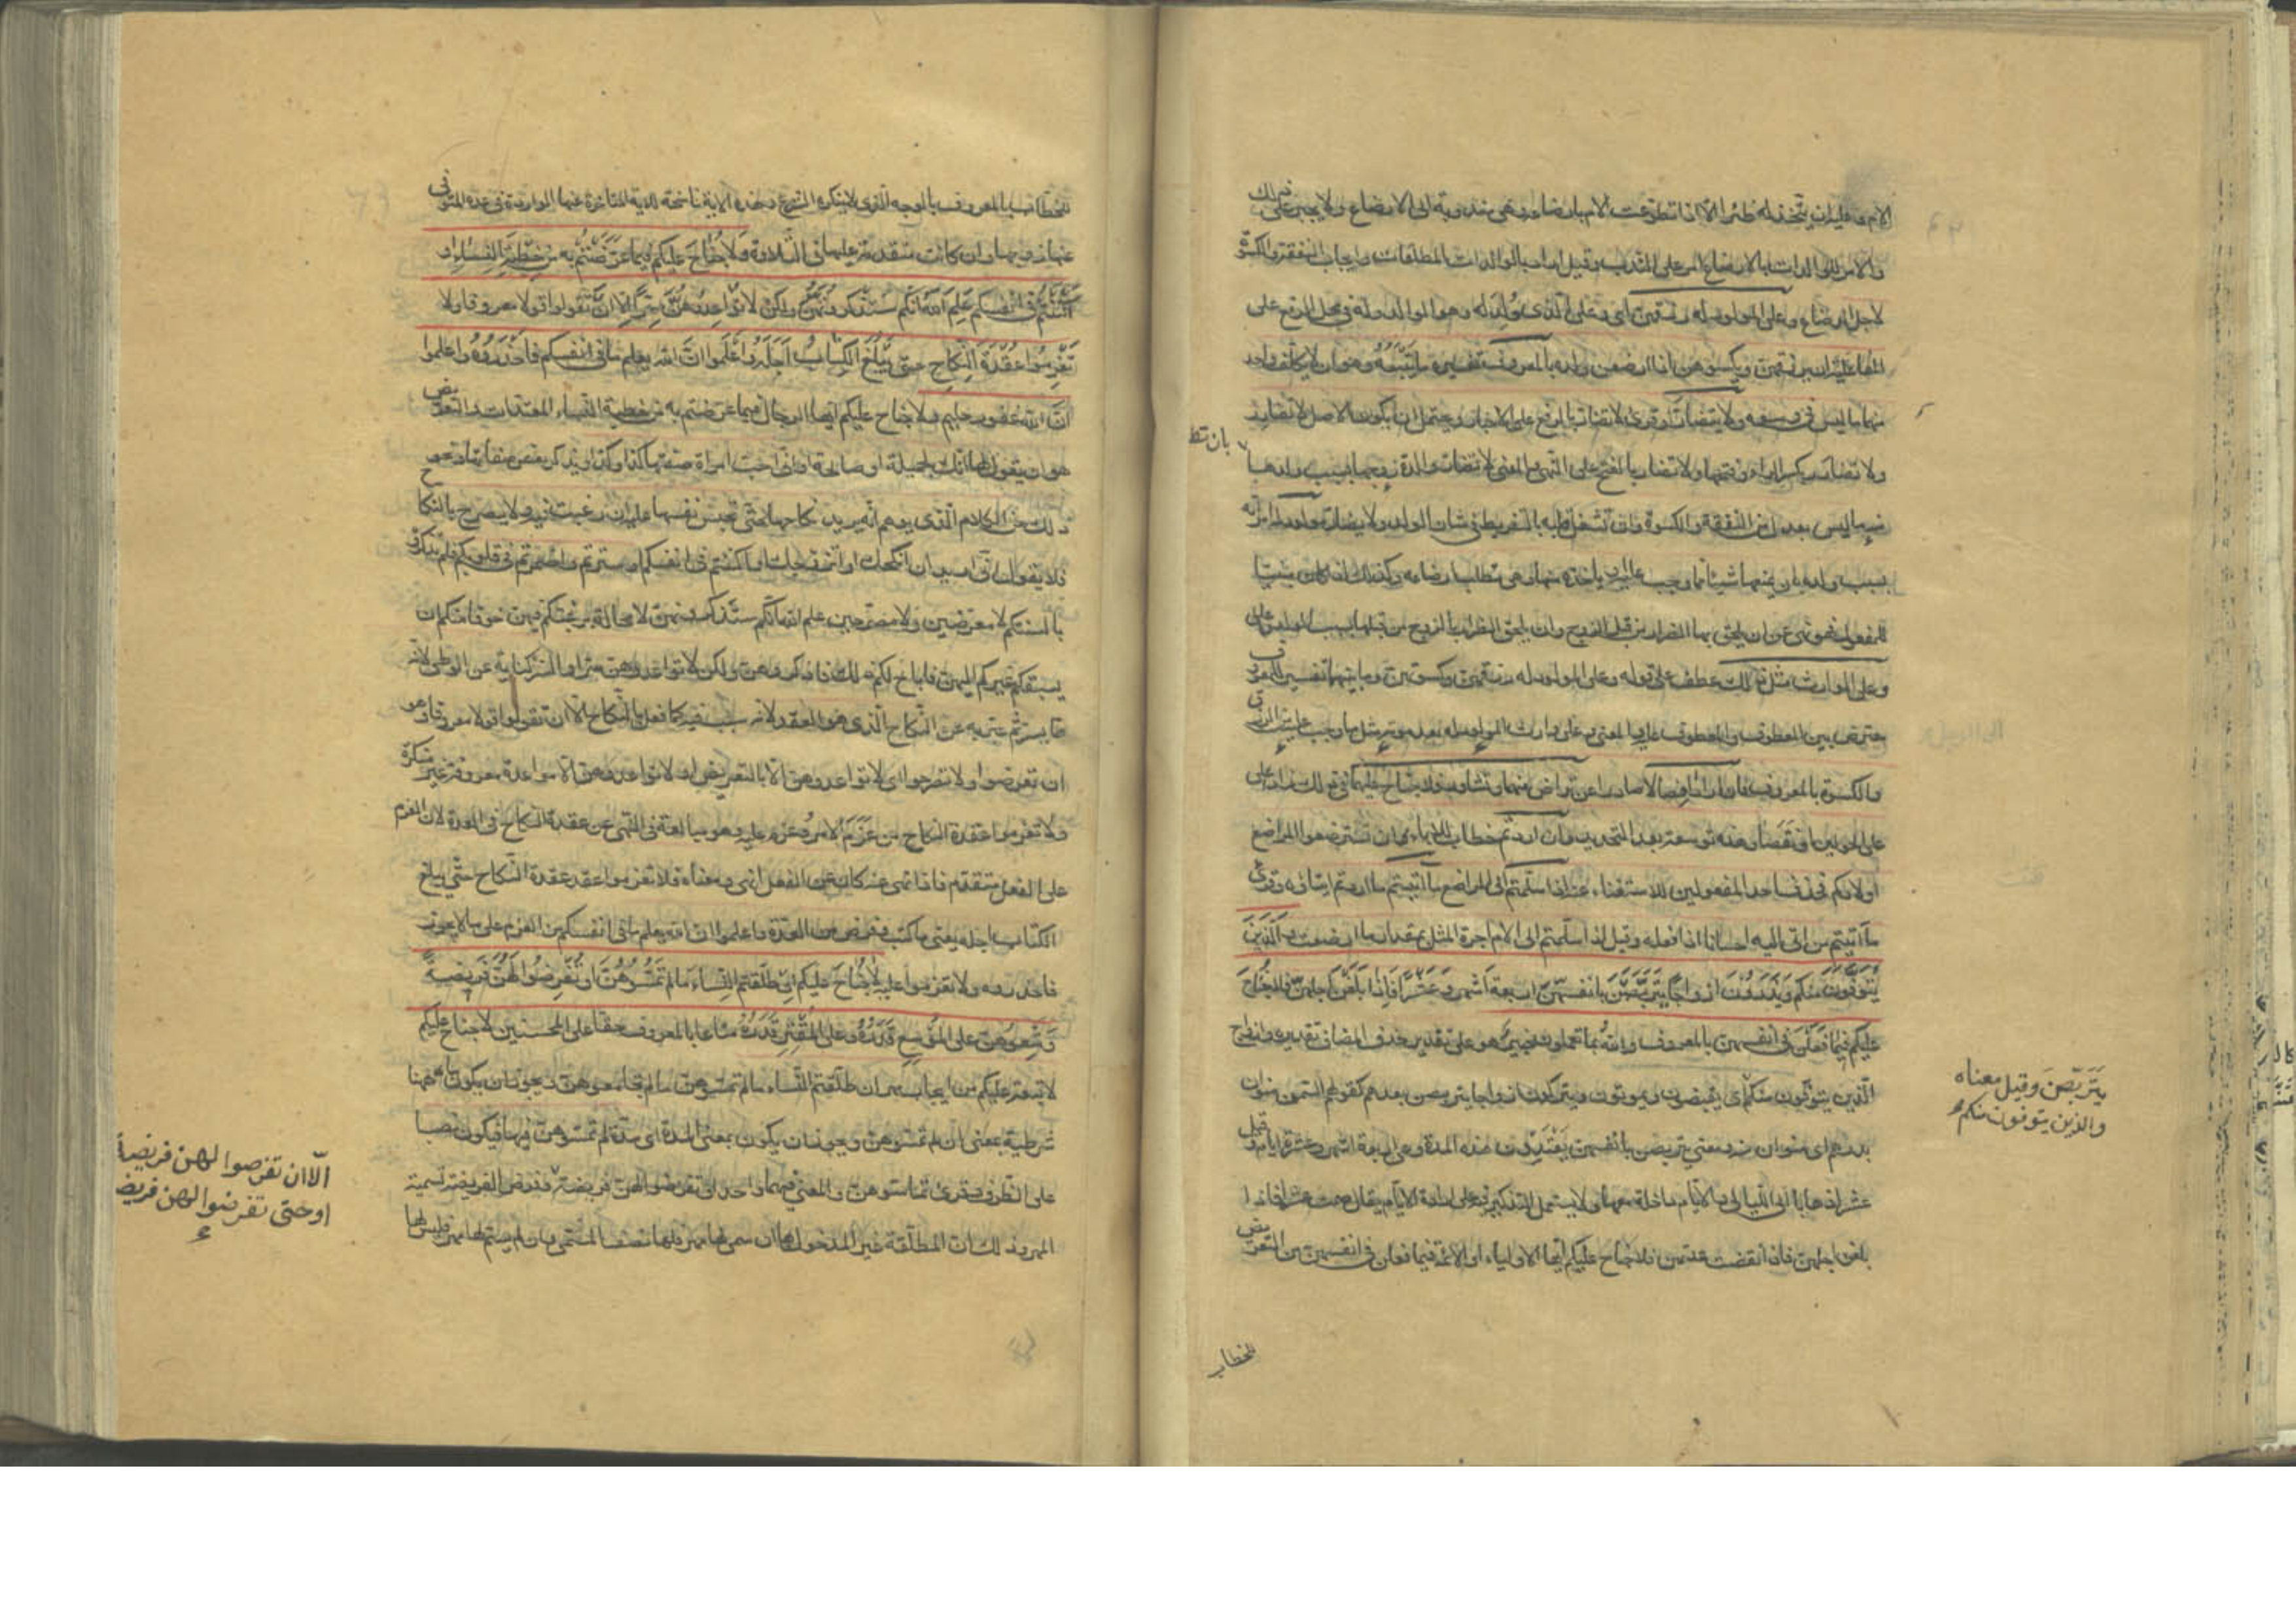 الام وعليه ان يتخذ له ظئرا الا اذا تطوعت الام بارضاعه وهي مندوبة الى الارضاع ولا يجبر على ذلك
والامر للوالدات بالارضاع امر على الندب وقيل اراد بالوالدات المطلقات وايجاب النفقة والكسوة
لاجل الرضاع وعلى المولود له رزقهن اى وعلى الذى يولد له وهو الوالد وله في محل الرفع على
الفاعلية ان يرزقهن ويكسوهن اذا ارضعن ولده بالمعروف تفسيره ما يتبعه وهو ان لا يكلف واحد
منهما ما ليس في وسعه ولا يتضارا وقرئ لا تضار بالرفع على الاخبار ويحتمل ان يكون الاصل لا تضارر
ولا تضارر بكسر الراء وفتحها ولا تضار بالفتح على النهى والمعنى لا تضار والدة زوجها بسبب ولدها
بان تطلب
منه ما ليس بعدل من النفقة والكسوة وان تشغل قلبه بالتفريط في شان الولد ولا يضار مولود له امراته
بسبب ولده بان يمنعها شيئا مما وجب عليه او ياخذه منها وهى تطلب ارضاعه وكذلك اذا كان مبنيا
للمفعول فهو نهى عن ان يلحق بها الضرار من قبل الزوج وان يلحق الضرار بالزوج من قبلها بسبب الولد
وعلى الوارث مثل ذلك عطف على قوله وعلى المولود له رزقهن وكسوتهن وما بينهما تفسير للمعروف
معترض بين المعطوف والمعطوف عليه والمعنى وعلى وارث المولود له بعد موته مثل ما وجب عليه من الرزق
والكسوة بالمعروف فان ارادا فصالا صادرا عن تراض منهما وتشاور فلا جناح عليهما في ذلك زادا على
على الحولين او نقصا وهذه توسعة بعد التحديد وان اردتم خطاب للاباء ان تسترضعوا المراضع
اولادكم فحذف احد المفعولين للاستغناء عنه اذا سلمتم الى المراضع ما آتيتم ما اردتم ايتاءه وقرئ
ما اتيتم من اتى اليه احسانا اذا فعله وقيل اذا سلمتم الى الام اجرة المثل بمقدار ما ارضعت والذين
يتوفون منكم ويذرون ازواجا يتربصن بانفسهن اربعة اشهر وعشرا فاذا بلغن اجلهن فلا جناح
عليكم فيما فعلن في انفسهن بالمعروف والله بما تعملون خبير هو على تقدير حذف المضاف تقديره وازواج
الذين يتوفون منكم اى يقبضون ويموتون ويتركون ازواجا يتربصن بعدهم كقولهم السمن منوان
يتربصن وقيل معناه
والذين يتوفون منكم
بدرهم اى منوان منه ومعنى يتربصن بانفسهن يعتددن هذه المدة وهى اربعة اشهر وعشرة ايام وقيل
عشرا ذهابا الى الليالى والايام داخلة معها ولا يستعمل التذكير فيه على ارادة الايام يقال صمت عشرا فاذا
بلغن اجلهن فاذا انقضت عدتهن فلا جناح عليكم ايها الاولياء او الائمة فيما فعلن في انفسهن من التعرض
للخطاب
للخطاب بالمعروف بالوجه الذى لا ينكره الشرع وهذه الاية ناسخة للاية المتاخرة عنها الواردة في عدة المتوفى
عنها زوجها وان كانت متقدمة عليها في التلاوة ولا جناح عليكم فيما عرضتم به من خطبة النساء او
اكننتم في انفسكم علم الله انكم ستذكرونهن ولكن لا تواعدوهن سرا الا ان تقولوا قولا معروفا ولا
تعزموا عقدة النكاح حتى يبلغ الكتاب اجله واعلموا ان الله يعلم ما في انفسكم فاحذروه واعلموا
ان الله غفور حليم ولا جناح عليكم ايها الرجال فيما عرضتم به من خطبة النساء المعتدات والتعريض
هو ان يقول لها انك لجميلة او صالحة او انى احب امراة صفتها كذا وكذا ويذكر بعض صفاتها ونحو
ذلك من الكلام الذى يوهم انه يريد نكاحها حتى تحبس نفسها عليه ان رغبت فيه ولا يصرح بالنكاح
فلا يقول انى اريد ان انكحك او اتزوجك او اكننتم في انفسكم او سترتم واضمرتم في قلوبكم فلم تذكروه
بالسنتكم لا معرضين ولا مصرحين علم الله انكم ستذكرونهن لا محالة برغبتكم فيهن خوفا منكم ان
يسبقكم غيركم اليهن فاباح لكم ذلك فاذكروهن ولكن لا تواعدوهن سرا والسر كناية عن الوطى لانه
مما يسر ثم عبر به عن النكاح الذى هو العقد لانه سبب فيه كما فعل بالنكاح الا ان تقولوا قولا معروفا وهو
ان تعرضوا ولا تصرحوا اى لا تواعدوهن الا بالتعريض او لا تواعدوهن الا مواعدة معروفة غير منكرة
ولا تعزموا عقدة النكاح من عزم الامر وعزم عليه وهو مبالغة في النهى عن عقدة النكاح في العدة لان العزم
على الفعل يتقدم فاذا نهى عنه كان عن الفعل انهى ومعناه فلا تعزموا عقد عقدة النكاح حتى يبلغ
الكتاب اجله يعنى ما كتب وفرض من العدة واعلموا ان الله يعلم ما في انفسكم من العزم على ما لا يجوز
فاحذروه ولا تعزموا عليه لا جناح عليكم ان طلقتم النساء ما لم تمسوهن او تفرضوا لهن فريضة
ومتعوهن على الموسع قدره وعلى المقتر قدره متاعا بالمعروف حقا على المحسنين لا جناح عليكم
لا تبعة عليكم من ايجاب مهر ان طلقتم النساء ما لم تمسوهن ما لم تجامعوهن ويجوز ان يكون ما ههنا
شرطية بمعنى ان لم تمسوهن ويجوز ان يكون بمعنى المدة اى مدة لم تمسوهن فيها فيكون نصبا
على الظرف وقرئ تماسوهن والمعنى فيهما واحد او تفرضوا لهن فريضة وفرض الفريضة تسمية
الا ان تفرضوا لهن فريضة
او حتى تفرضوا لهن فريضة
المهر وذلك ان المطلقة غير المدخول بها ان سمى لها مهر فلها نصف المسمى وان لم يسم لها مهر فليس لها